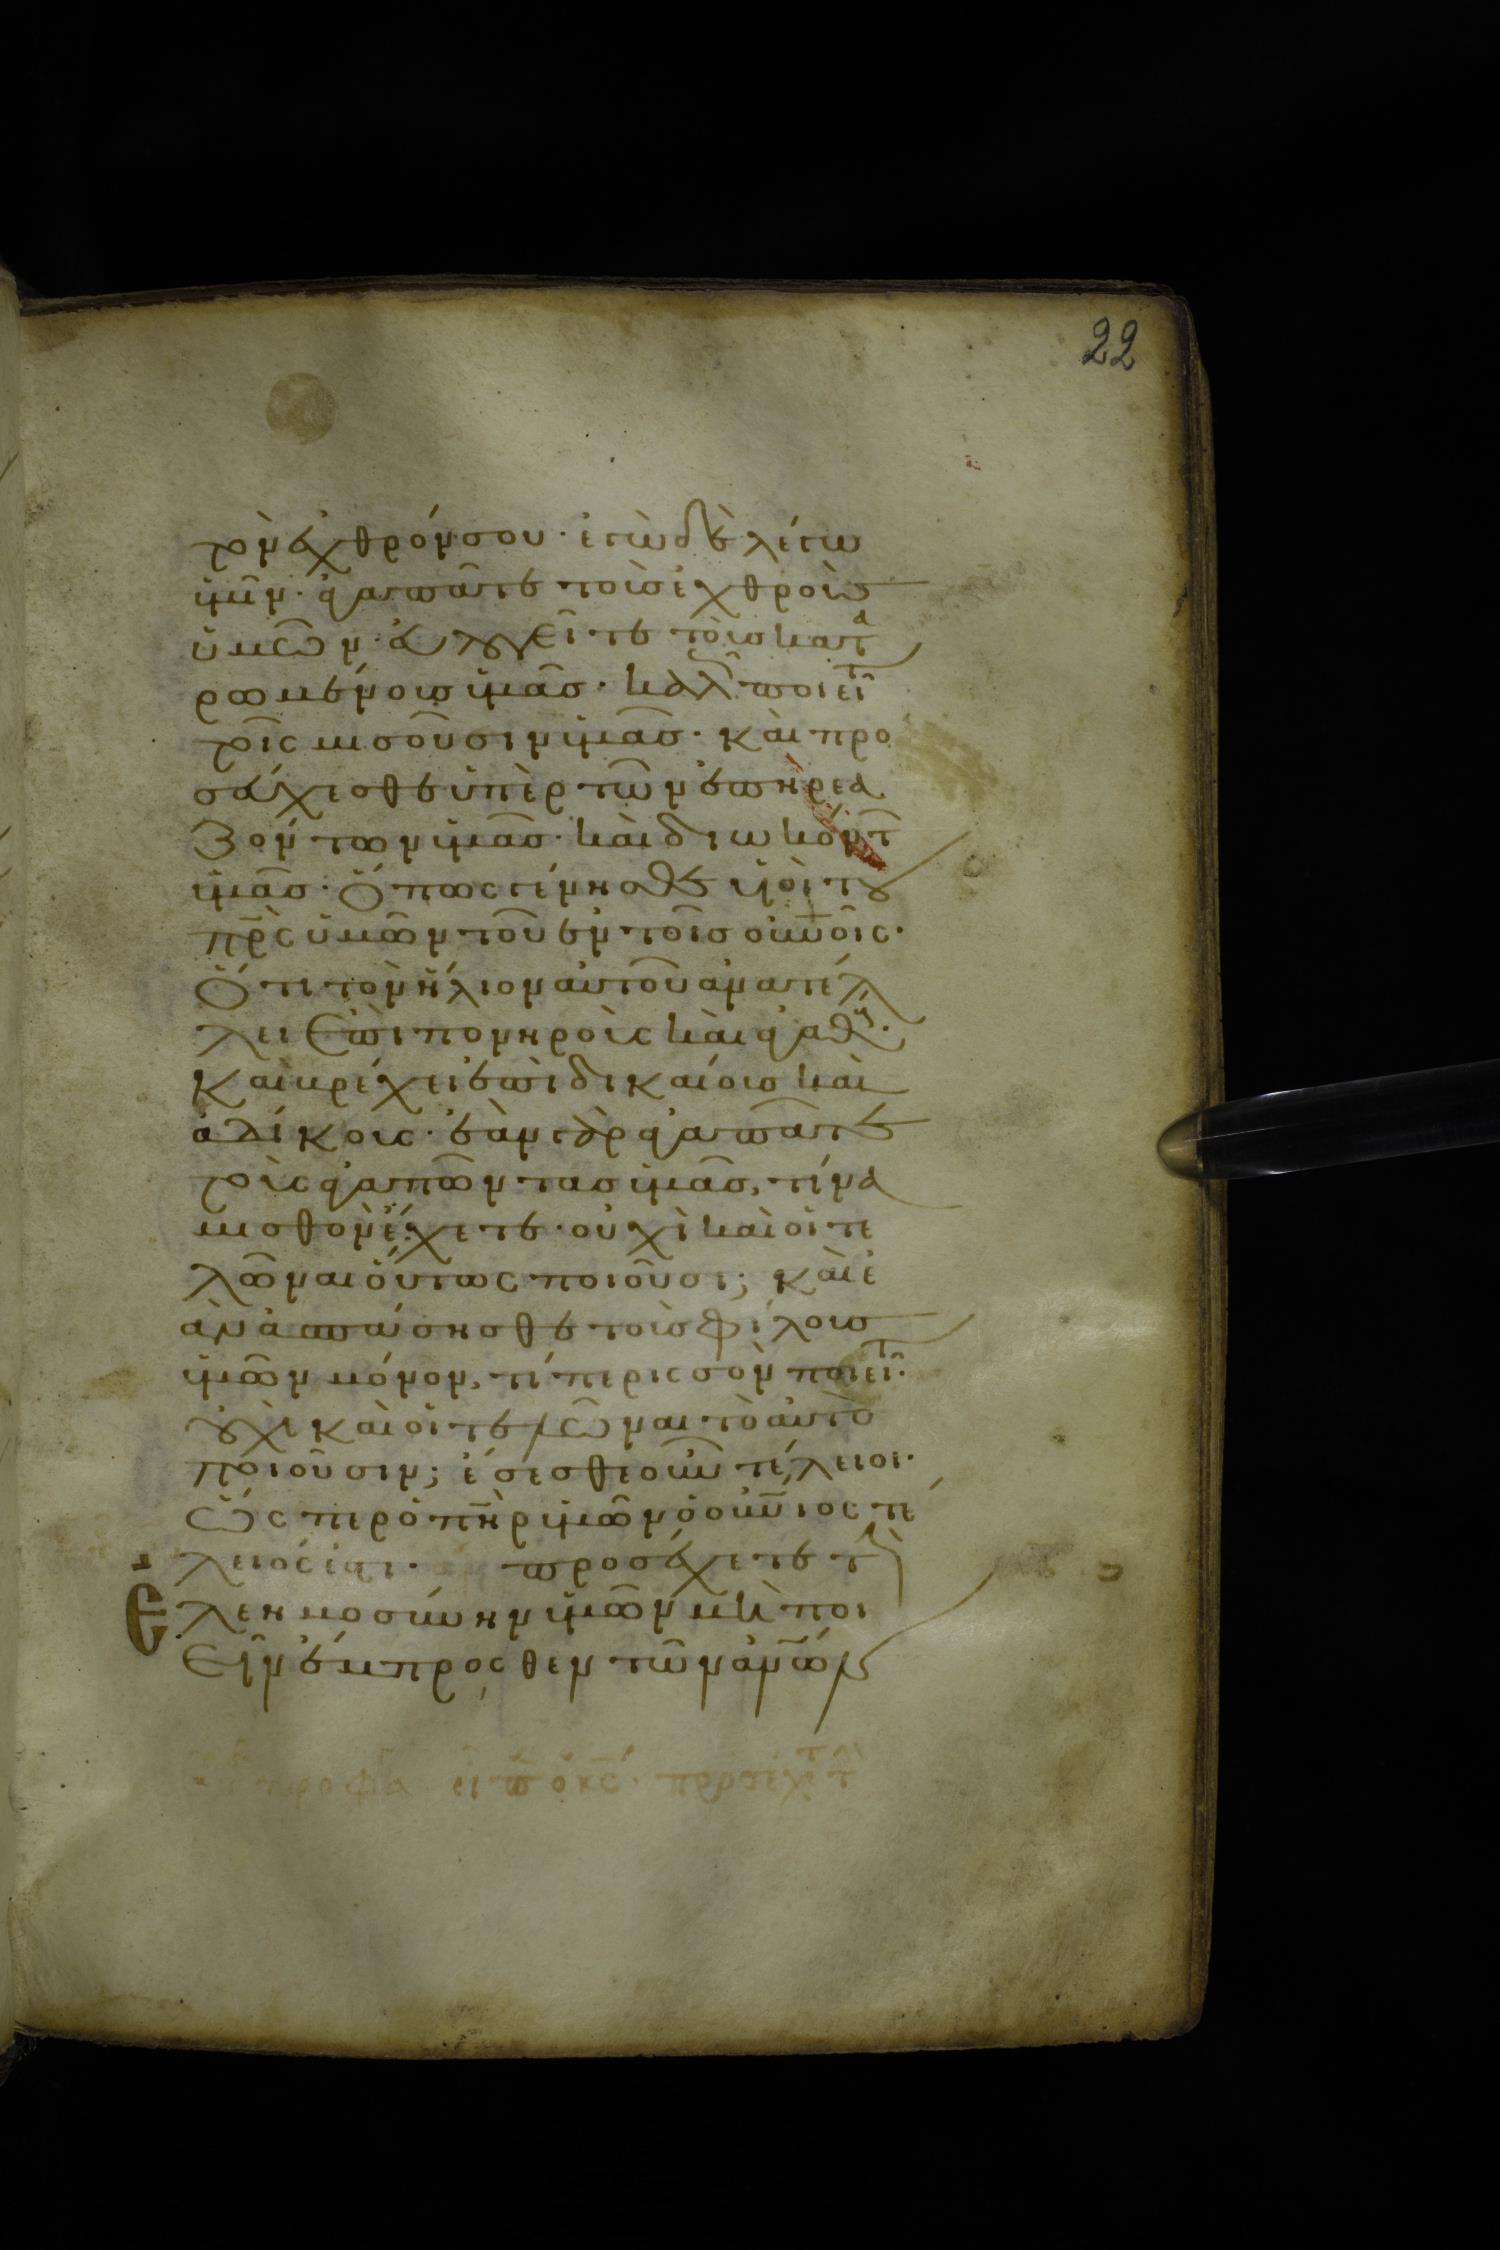 22
τὸν ἐχθρόν σου· ἐγὼ δὲ λέγω
ὑμῖν· ἀγαπᾶτε τοὺς ἐχθροὺς
ὑμῶν· εὐλογεῖτε τοὺς κατα
ρωμένους ὑμᾶς· καλῶς ποιεῖτε
τοῖς μισοῦσιν ὑμᾶς· καὶ προ
σεύχεσθε ὑπὲρ τῶν ἐπηρεα
ζόντων ὑμᾶς· καὶ διωκόντων
ὑμᾶς· ὅπως γένησθε υἱοὶ τοῦ
πρ̅ς ὑμῶν τοῦ ἐν τοῖς οὐν̅οῖς·
ὅτι τὸν ἥλιον αὐτοῦ ἀνατέλ
λει ἐπὶ πονηροὺς καὶ ἀγαθούς·
καὶ βρέχει ἐπὶ δικαίους καὶ
ἀδίκους· ἐὰν γὰρ ἀγαπᾶτε
τοὺς ἀγαπῶντας ὑμᾶς, τίνα
μισθὸν ἔχετε· οὐχὶ καὶ οἱ τε
λῶναι οὕτως ποιοῦσι; καὶ ἐ
ὰν ἀσπάσησθε τοὺς φίλους
ὑμῶν μόνον, τί περισσὸν ποιεῖτε·
οὐχὶ καὶ οἱ τελῶναι τὸ αὐτὸ
ποιοῦσιν; ἔσεσθε οὖν τέλειοι·
ὥσπερ ὁ πη̅ρ ὑμῶν ὁ οὐν̅ιος τέ
λειός ἐστι· προσέχετε τὴν
ἐλεημοσύνην ὑμῶν μὴ ποι
εῖν ἔμπροσθεν τῶν ἀν̅ων
εἶπ ὁ κς̅· προσέχετε τὴν